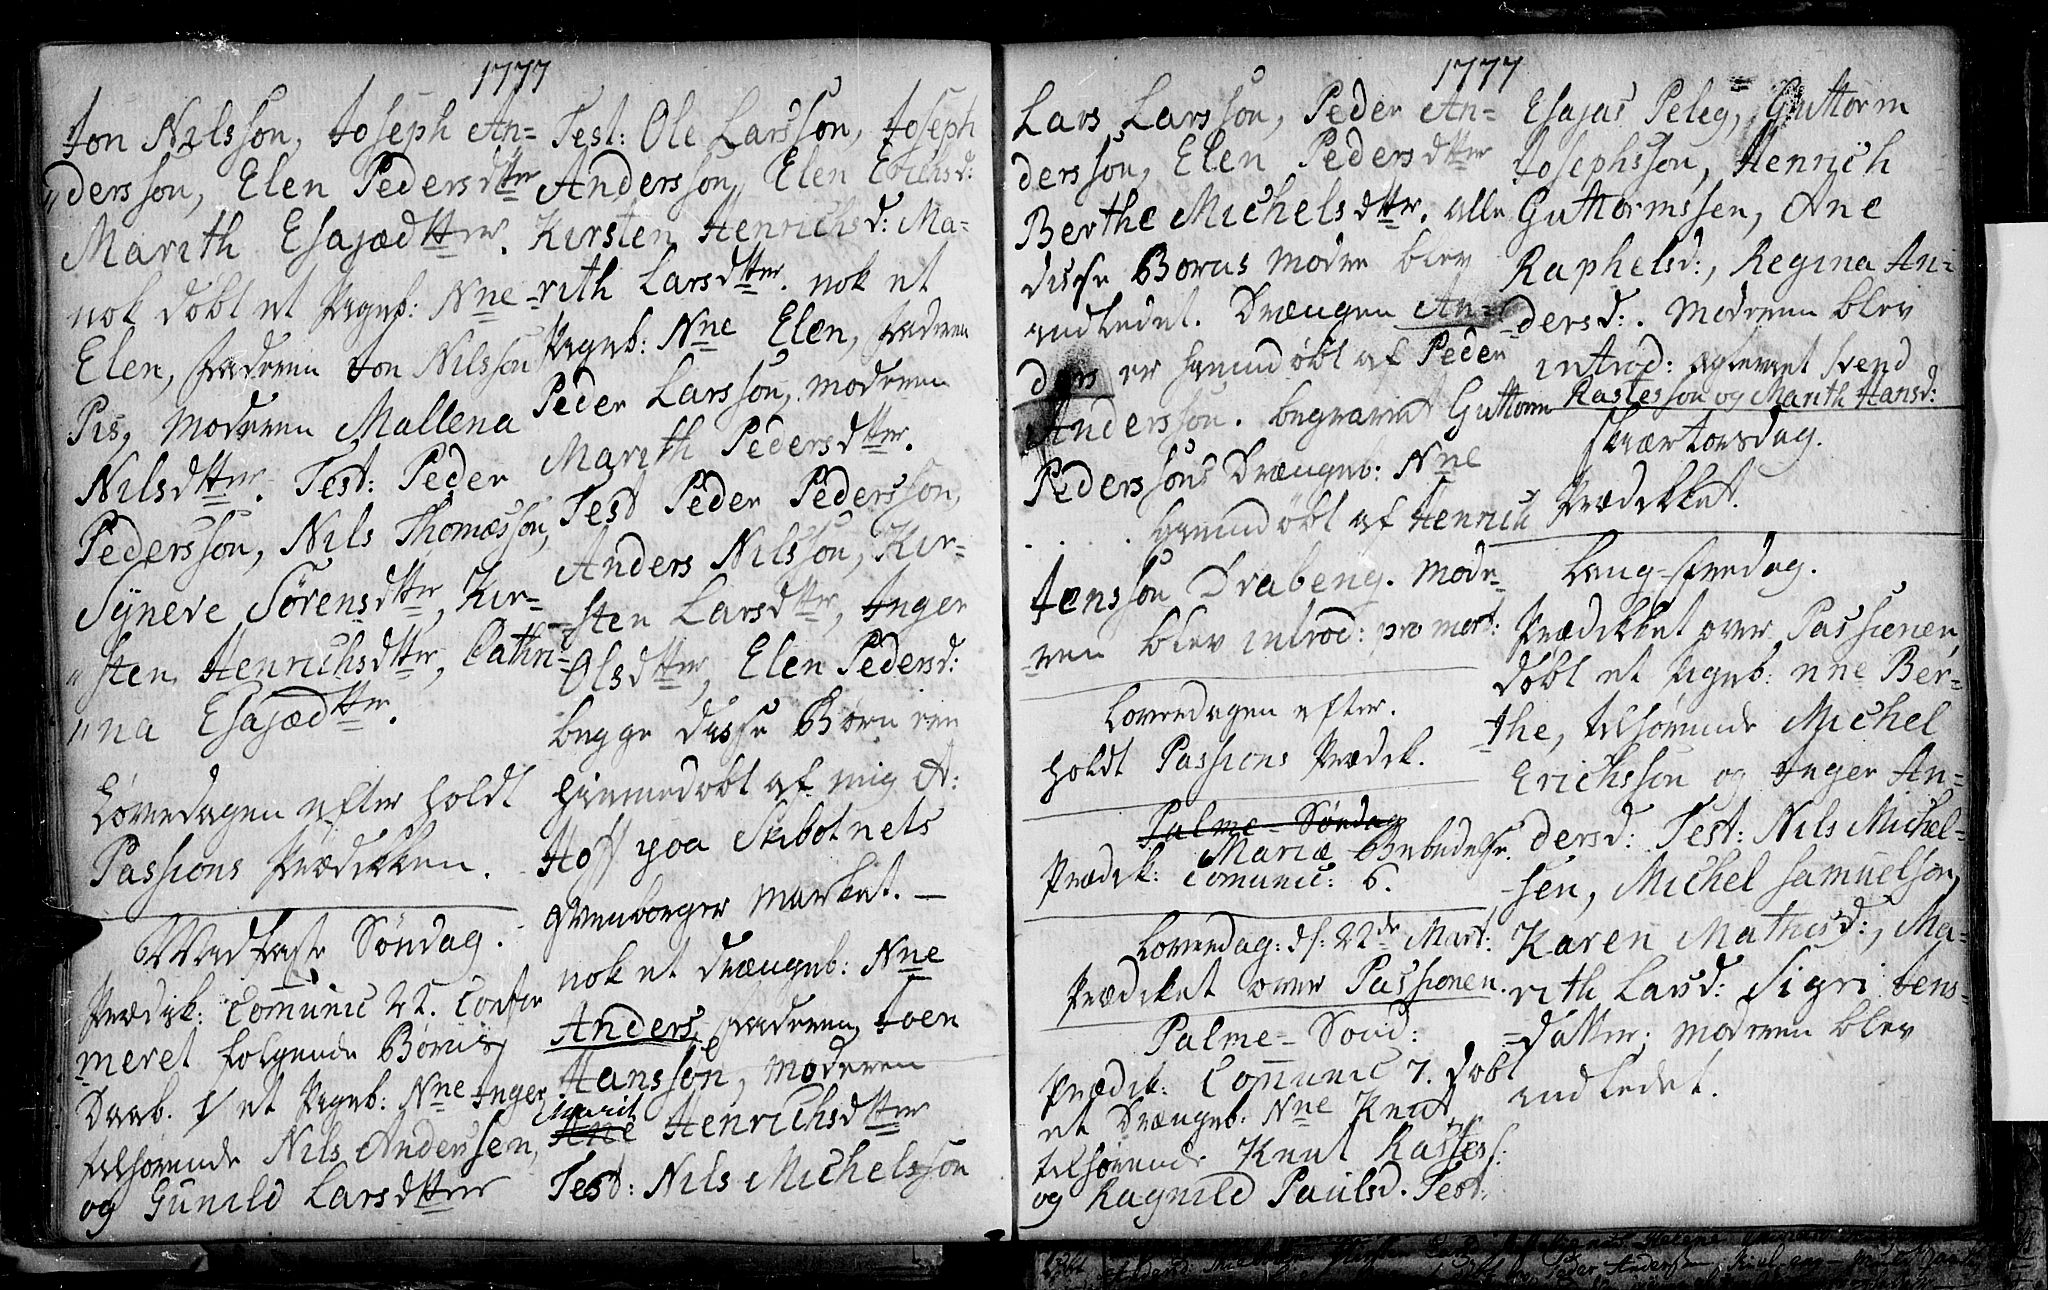 1777
Jon Nilsson, Joseph An=
dersson, Elen Pedersdtter
Marith Esajædtter.
nok döbt et Pigeb: Nne
Elen, Faderen Jon Nilsson
Pis, Moderen Mallena
Nilsdtter. Test: Peder
Pedersson, Nils Thomæsson,
Syneve Sörensdtter, Kir=
sten Henrichsdtter, Cathri=
na Esajædtter.
Löverdagen efter holdt
Passions Prædikken.
Midfaste Söndag.
Prædik: Comunic 22. Confir
meret følgende Börn
Daab. 1/ et Pigeb: Nne Inger
tilhörende Nils Andersen,
og Gunild Larsdtter
Test: Ole Larsson, Joseph
Andersson, Elen Erichsd:
Kirsten Henrichsd: Ma=
rith Larsdtter. nok et
Pigeb: Nne Elen, Faderen
Peder Larsson, Moderen
Marith Pedersdtter.
Test Peder Pedersson,
Anders Nilsson, Kir=
sten Larsdtter, Inger
Olsdtter, Elen Pedersd:
begge disse Börn ere
hiemmedöbt af mig A:
Hoff paa Skibotnets
Market. —
nok et Drængeb: Nne
Anders, Faderen, Joen
Hansson, Moderen
Marit
Ane Henrichsdtter
Test: Nils Michelsson
1777
Lars Larsson, Peder An=
dersson, Elen Pedersdtter
Berthe Michelsdtter. alle
disse Börns Modre blev
indledet. Drængen An=
ders er hiemdöbt af Peder
Andersson. begravet Guttorm
Pederssöns Drængeb: Nne
. . . . hiemdöbt af Henrich
Jensson Drabeng. Mode=
ren blev introd: pro mort:
Löverdagen efter.
holdt Passions Prædik.
Palme-Söndag
Mariæ Bebudelse.
Prædik: Comunic: 6.
Löverdag: d: 22de Mart:
Prædiket over Passionen.
Palme-Sönd:
Prædik: Comunic 7. döbt
et Drængeb: Nne Knut
tilhörende Knut Rastess:
og Ragnild Paulsd. Test:
Esajas Peleg, Guttorm
Josephsson, Henrich
Guttormssen, Ane
Raphelsd:, Regina An=
dersd:. Moderen blev
introd: begravet Svend
Rastesson og Marith Hansd:
Skiærtorsdag.
Prædikket.
Lang-Fredag.
Prædikket over Passionen
döbt et Pigeb: nne Ber=
the, tilhörende Michel
Erichsson og Inger An=
dersd: Test: Nils Michel=
sen, Michel Samuelson,
Karen Mathisd:, Ma=
rith Larsd: Sigri Jens=
datter: Moderen blev
indledet.